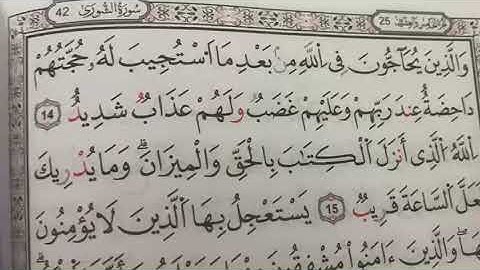 سُورَةُ الشُّورَىٰ 42 25
وَالَّذِينَ يُحَآجُّونَ فِي اللَّهِ مِنۢ بَعْدِ مَا اسْتُجِيبَ لَهُۥ حُجَّتُهُمْ
دَاحِضَةٌ عِندَ رَبِّهِمْ وَعَلَيْهِمْ غَضَبٌ وَلَهُمْ عَذَابٌ شَدِيدٌ 14
اللَّهُ الَّذِي أَنزَلَ الْكِتَابَ بِالْحَقِّ وَالْمِيزَانَ ۗ وَمَا يُدْرِيكَ
لَعَلَّ السَّاعَةَ قَرِيبٌ 15 يَسْتَعْجِلُ بِهَا الَّذِينَ لَا يُؤْمِنُونَ
بِهَا ۖ وَالَّذِينَ ءَامَنُوا مُشْفِقُونَ